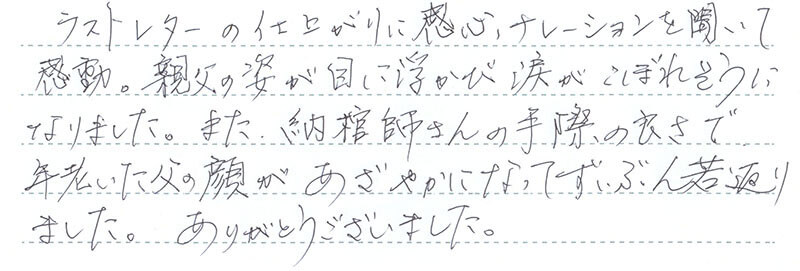 ラストレターの仕上がりに感心、ナレーションを聞いて
感動。親父の姿が目に浮かび涙がこぼれそうに
なりました。また、納棺師さんの手際の良さで
年老いた父の顔があざやかになってずいぶん若返り
ました。ありがとうございました。